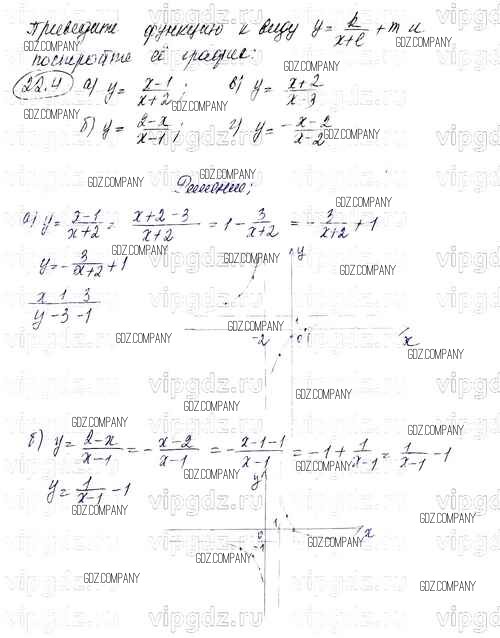 Приведите функцию к виду y = k/(x+l) + m и
постройте её график:
22.4 а) y = (x-1)/(x+2); в) y = (x+2)/(x-3)
б) y = (2-x)/(x-1); г) y = -(x-2)/(x-2)
Решение;
а) y = (x-1)/(x+2) = (x+2-3)/(x+2) = 1 - 3/(x+2) = -3/(x+2) + 1
y = -3/(x+2) + 1
x 1 3
y -3 -1
y
-2 0 1 x
б) y = (2-x)/(x-1) = -(x-2)/(x-1) = -(x-1-1)/(x-1) = -1 + 1/(x-1) = 1/(x-1) - 1
y = 1/(x-1) - 1
y
0 1 x
-1
GDZ.COMPANY
vipgdz.ru